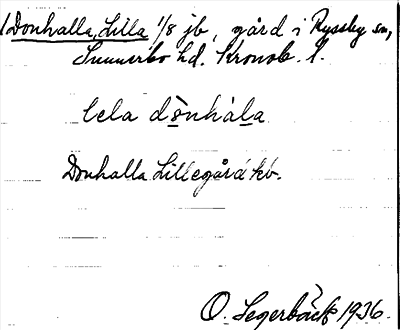 Donhalla, Lilla 1/8 jb, gård i Ryssby sn,
Sunnerbo hd. Kronob. l.
lela dònhála
Donhalla Lillegård kb.
O. Segerbäck 1936.